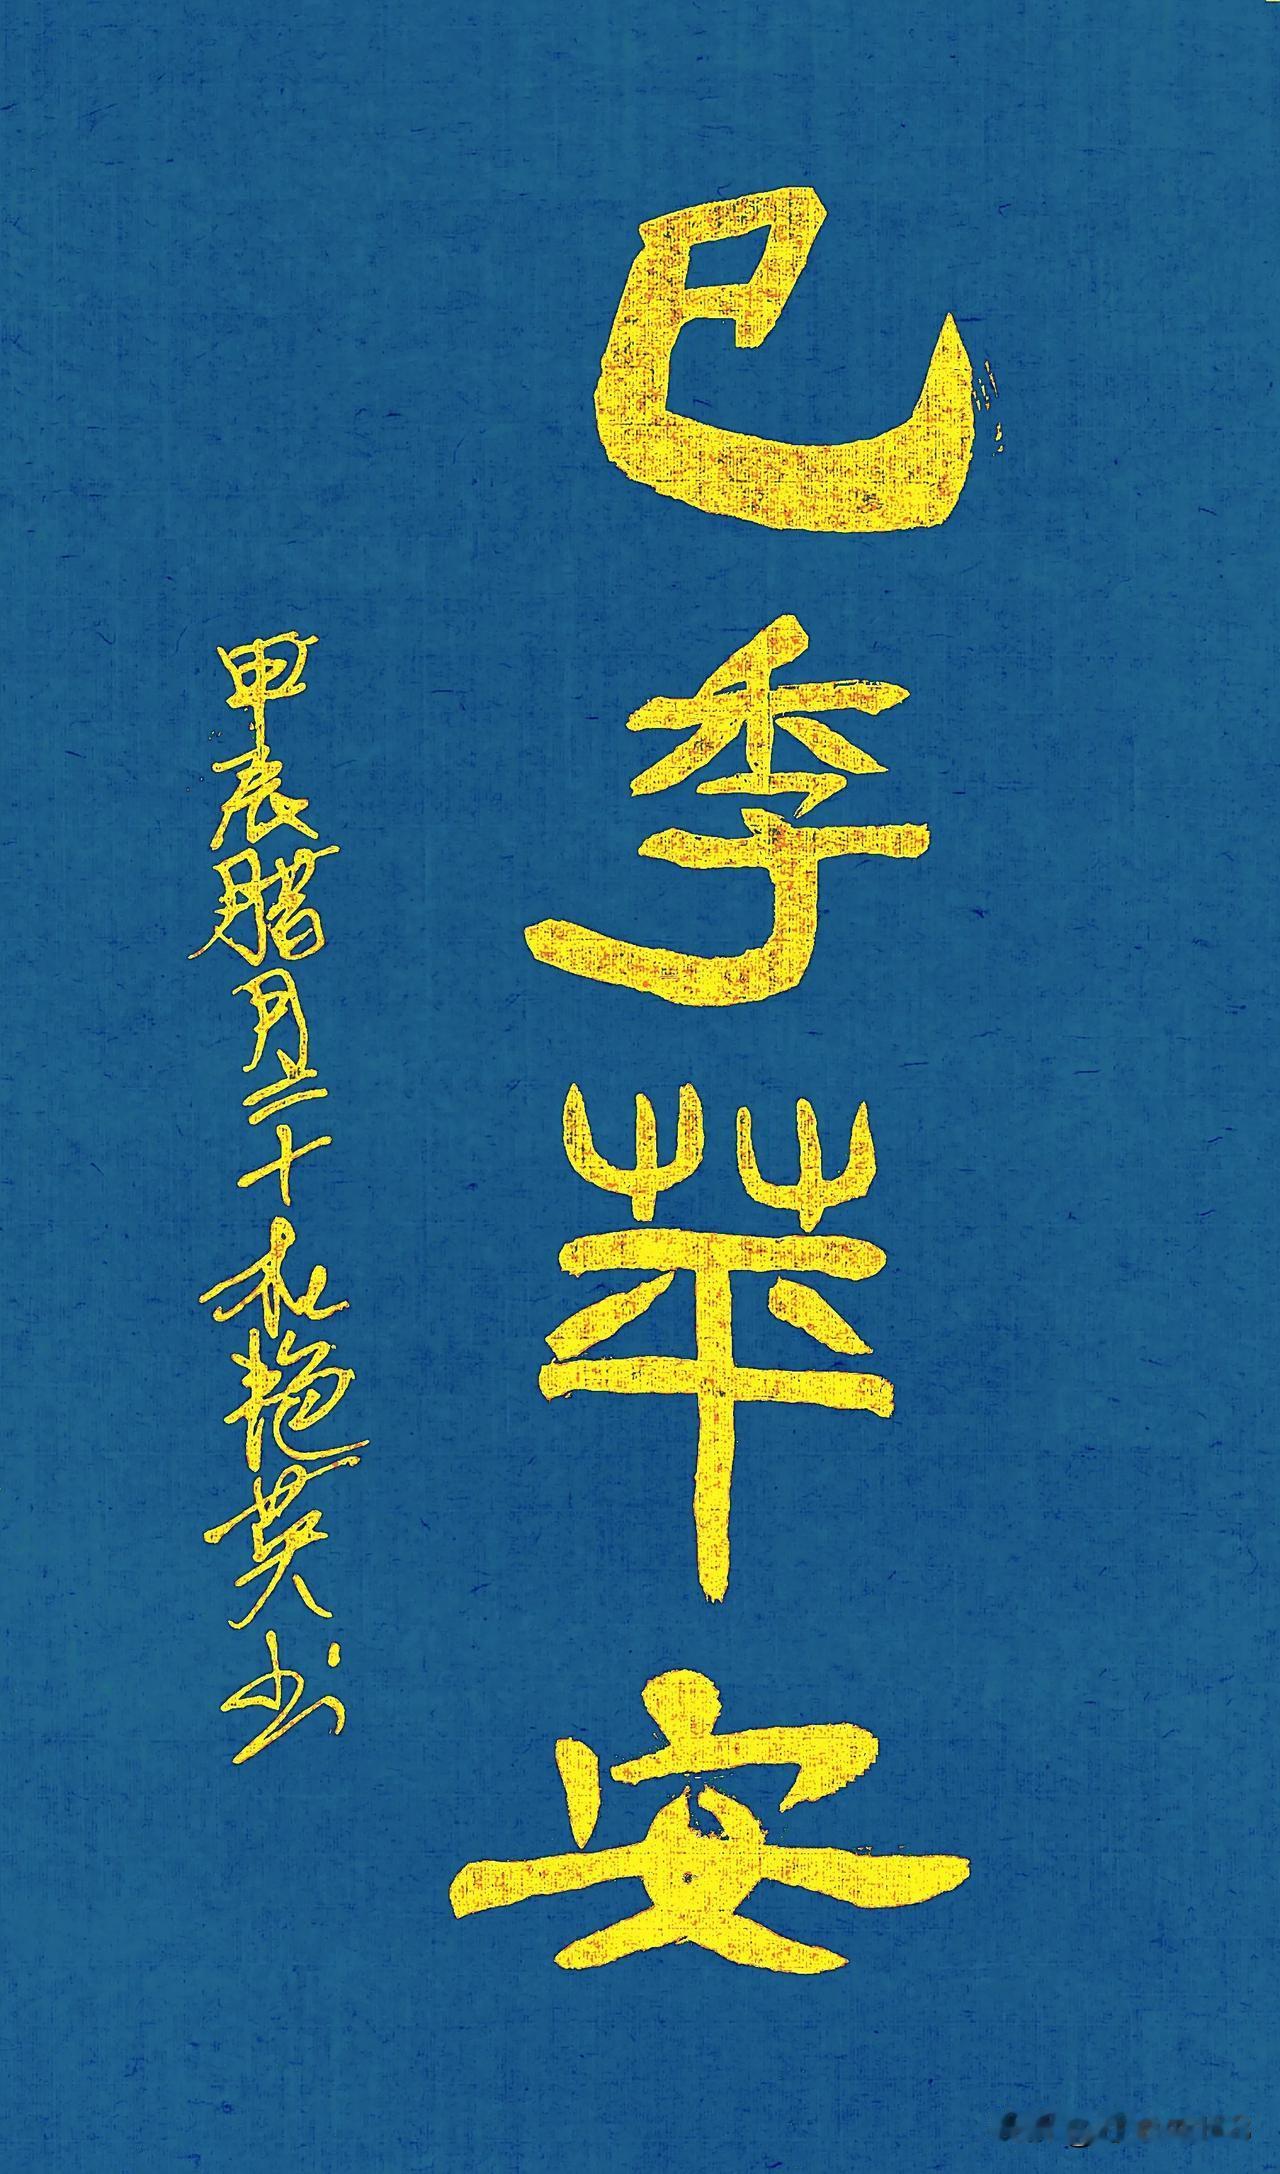 巳季苹安
甲辰腊月二十艳英书